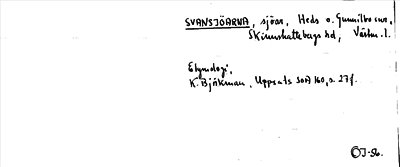 SVANSJÖARNA, sjöar, Heds o. Gunnilbo snr,
Skinnskattebergs hd, Västm. l.
Etymologi,
K. Björkman, Uppsats SOÅ 160, s. 27 f.
ÖJ-56.